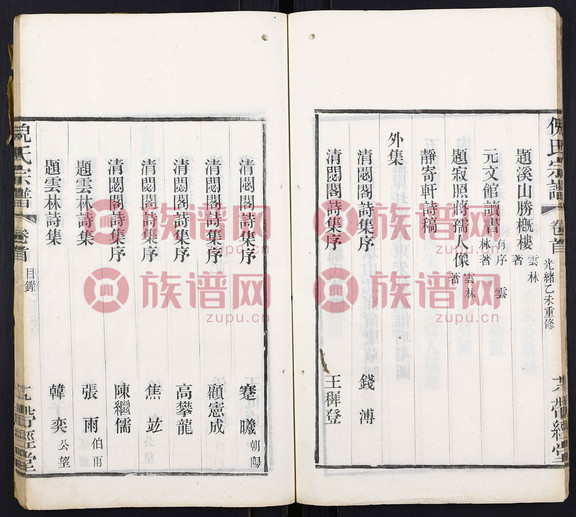 倪氏宗譜
卷首
光緒乙未重修
題溪山勝概樓 雲林著
元文館讀書 有序 雲林著
題寂照蔣孺人像 雲林著
靜寄軒詩稿
外集
清閟閣詩集序 錢溥
清閟閣詩集序 王穉登
清閟閣詩集序 蹇曦 朝陽
清閟閣詩集序 顧憲成
清閟閣詩集序 高攀龍
清閟閣詩集序 焦竑
清閟閣詩集序 陳繼儒
題雲林詩集 張雨 伯雨
題雲林詩集 韓奕 公望
倪氏宗譜
卷首
目錄
族谱网
zupu.cn
族谱网
zupu.cn
族谱网
zupu.cn
族谱网
zupu.cn